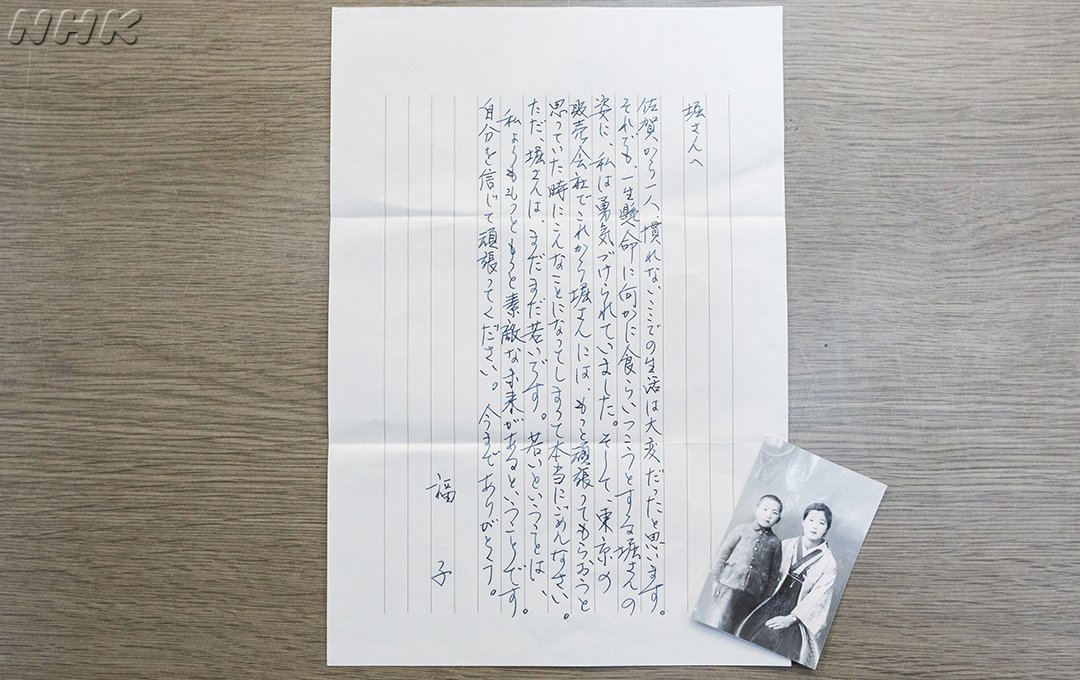 NHK
堀さんへ
佐賀から一人、慣れないここでの生活は大変だったと思います。
それでも、一生懸命に何かに食らいつこうとする堀さんの
姿に、私は勇気づけられていました。そして、東京の
販売会社でこれから堀さんには、もっと頑張ってもらおうと
思っていた時にこんなことになってしまって本当にごめんなさい。
ただ、堀さんは、まだまだ若いです。若いということは、
私よりももっともっと素敵な未来があるということです。
自分を信じて頑張ってください。今までありがとう。
福子